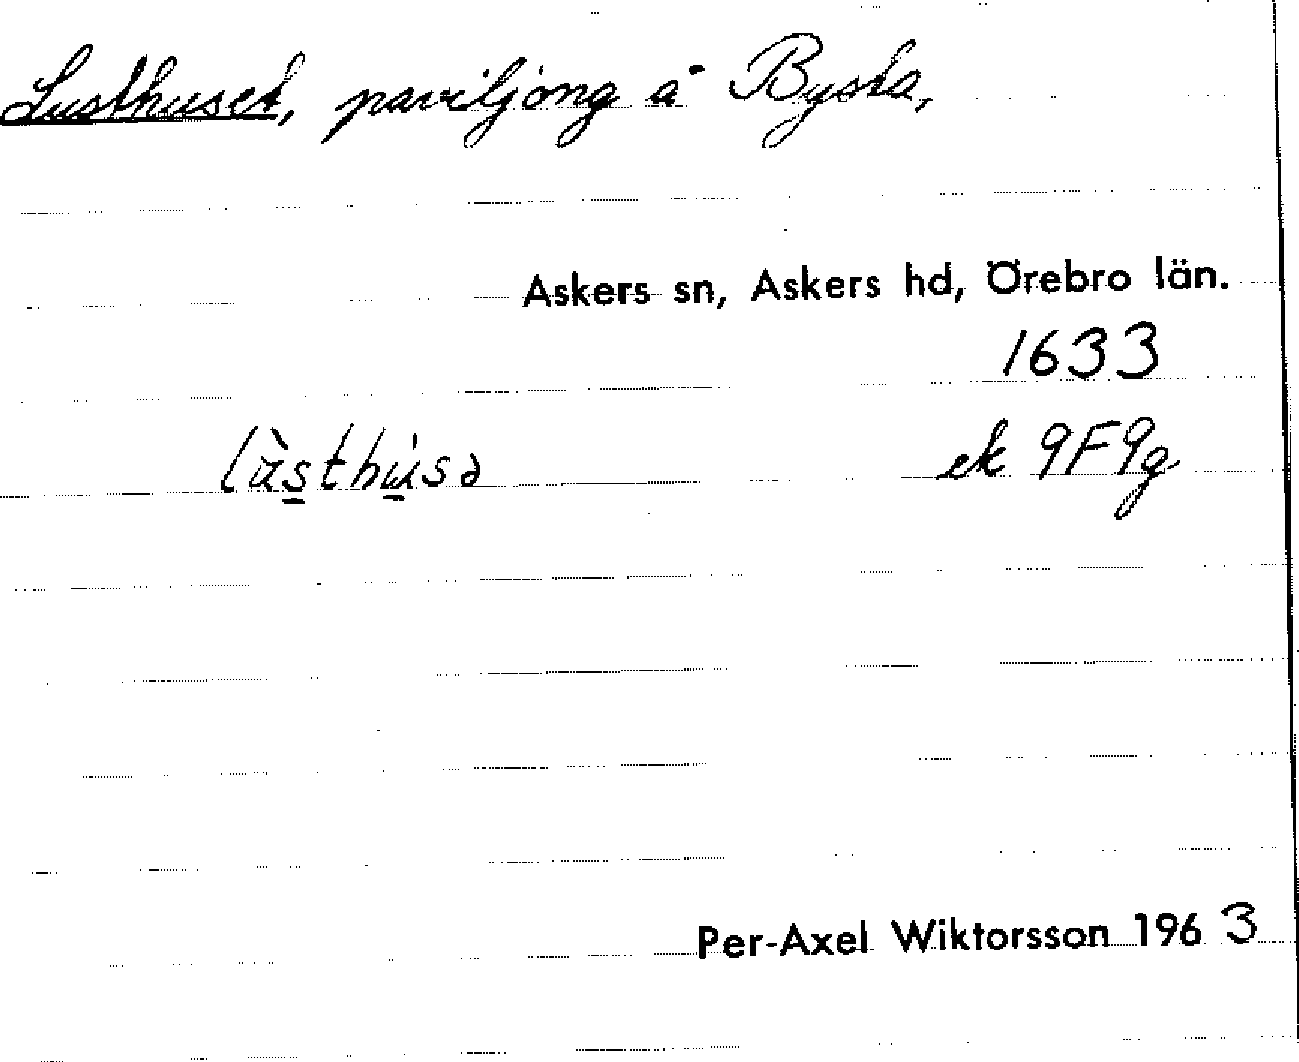 Lusthuset, paviljong å Bysta,
Askers sn, Askers hd, Örebro län.
1633
lùsthúsə ek 9F9g
Per-Axel Wiktorsson 1963